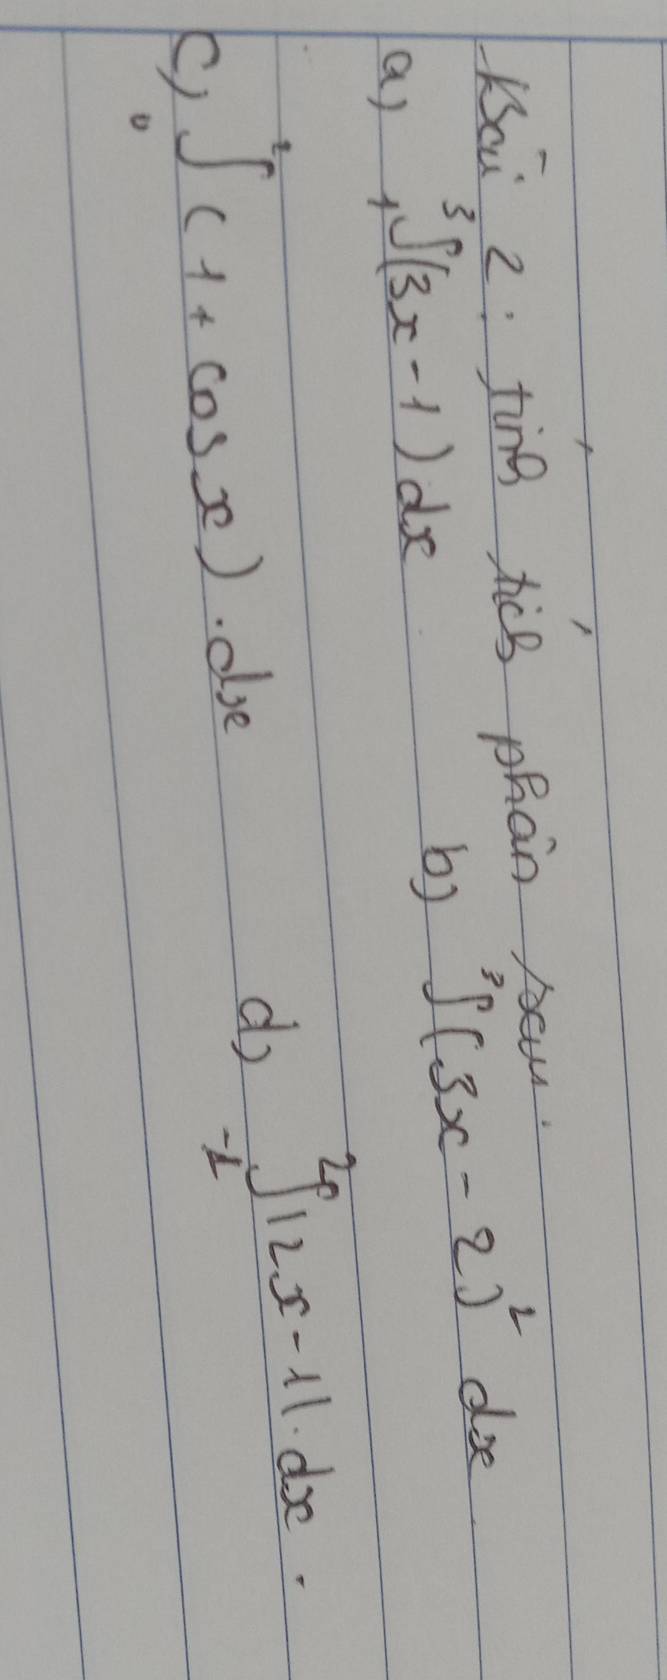 Bài 2: tính tích phân sau:
a) ₁∫³(3x - 1) dx b) ∫³(3x - 2)² dx
c) ₀∫² (1 + cos x) . dx d) ₋₁∫² |2x - 1| . dx .